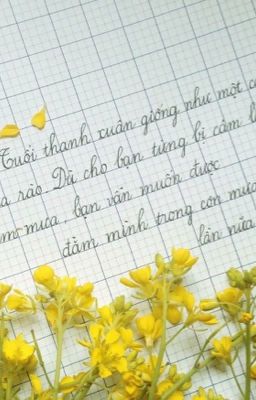 Tuổi thanh xuân giống như một c
a rào. Dù cho bạn từng bị cảm l
m mưa, bạn vẫn muốn được
đằm mình trong cơn mưa
lần nữa